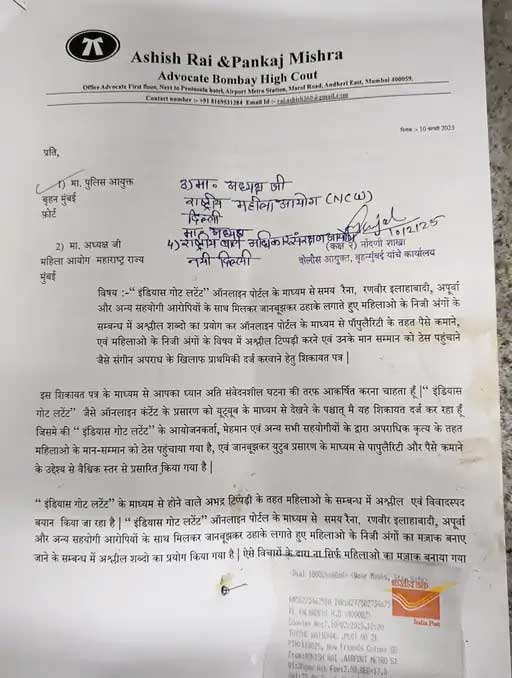 Ashish Rai &Pankaj Mishra
Advocate Bombay High Cout
Office Advocate First floor, Next to Peninsula hotel, Airport Metro Station, Marol Road, Andheri East, Mumbai 400059.
Contact number :- +91 8169531284 Email Id :- rai.ashish360@gmail.com
दिनांक :- 10 फरवरी 2025
प्रति,
1) मा. पुलिस आयुक्त
बृहन मुंबई
फ़ोर्ट
2) मा. अध्यक्ष जी
महिला आयोग महाराष्ट्र राज्य
मुंबई
3) मा॰ अध्यक्ष जी
राष्ट्रीय महीला आयोग (NCW)
दिल्ली
मा॰ अध्यक्ष
4) राष्ट्रीय बाल अधिकार संरक्षण आयोग
नयी दिल्ली
10/2/25
(कक्ष २) नोंदणी शाखा
पोलीस आयुक्त, बृहन्मुंबई यांचे कार्यालय
विषय :-“ इंडियास गोट लटेंट” ऑनलाइन पोर्टल के माध्यम से समय रैना, रणवीर इलाहाबादी, अपूर्वा
और अन्य सहयोगी आरोपियों के साथ मिलकर जानबूझकर ठहाके लगाते हुए महिलाओ के निजी अंगों के
सम्बन्ध में अश्लील शब्दो का प्रयोग कर ऑनलाइन पोर्टल के माध्यम से पॉपुलैरिटी के तहत पैसे कमाने,
एवं महिलाओ के निजी अंगों के विषय में अश्लील टिप्पड़ी करने एवं उनके मान सम्मान को ठेस पहुंचाने
जैसे संगीन अपराध के खिलाफ प्राथमिकी दर्ज करवाने हेतु शिकायत पत्र |
इस शिकायत पत्र के माध्यम से आपका ध्यान अति संवेदनशील घटना की तरफ आकर्षित करना चाहता हूँ |“ इंडियास
गोट लटेंट” जैसे ऑनलाइन कंटेंट के प्रसारण को यूट्यूब के माध्यम से देखने के पश्चात् मै यह शिकायत दर्ज कर रहा हूँ
जिसमे की “ इंडियास गोट लटेंट” के आयोजनकर्ता, मेहमान एवं अन्य सभी सहयोगीयों के द्वारा अपराधिक कृत्य के तहत
महिलाओ के मान-सम्मान को ठेस पहुंचाया गया है, एवं जानबूझकर युटुब प्रसारण के माध्यम से पापुलैरिटी और पैसे कमाने
के उद्देश्य से वैश्विक स्तर से प्रसारित किया गया है |
“ इंडियास गोट लटेंट” के माध्यम से होने वाले अभद्र टिप्पड़ी के तहत महिलाओ के सम्बन्ध में अश्लील एवं विवादस्पद
बयान किया जा रहा है | “ इंडियास गोट लटेंट” ऑनलाइन पोर्टल के माध्यम से समय रैना, रणवीर इलाहाबादी, अपूर्वा
और अन्य सहयोगी आरोपियों के साथ मिलकर जानबूझकर ठहाके लगाते हुए महिलाओ के निजी अंगों का मज़ाक बनाए
जाने के सम्बन्ध में अश्लील शब्दो का प्रयोग किया गया है | ऐसे विचारों के द्वारा ना सिर्फ महिलाओ का मज़ाक बनाया गया
भारतीय डाक
India Post